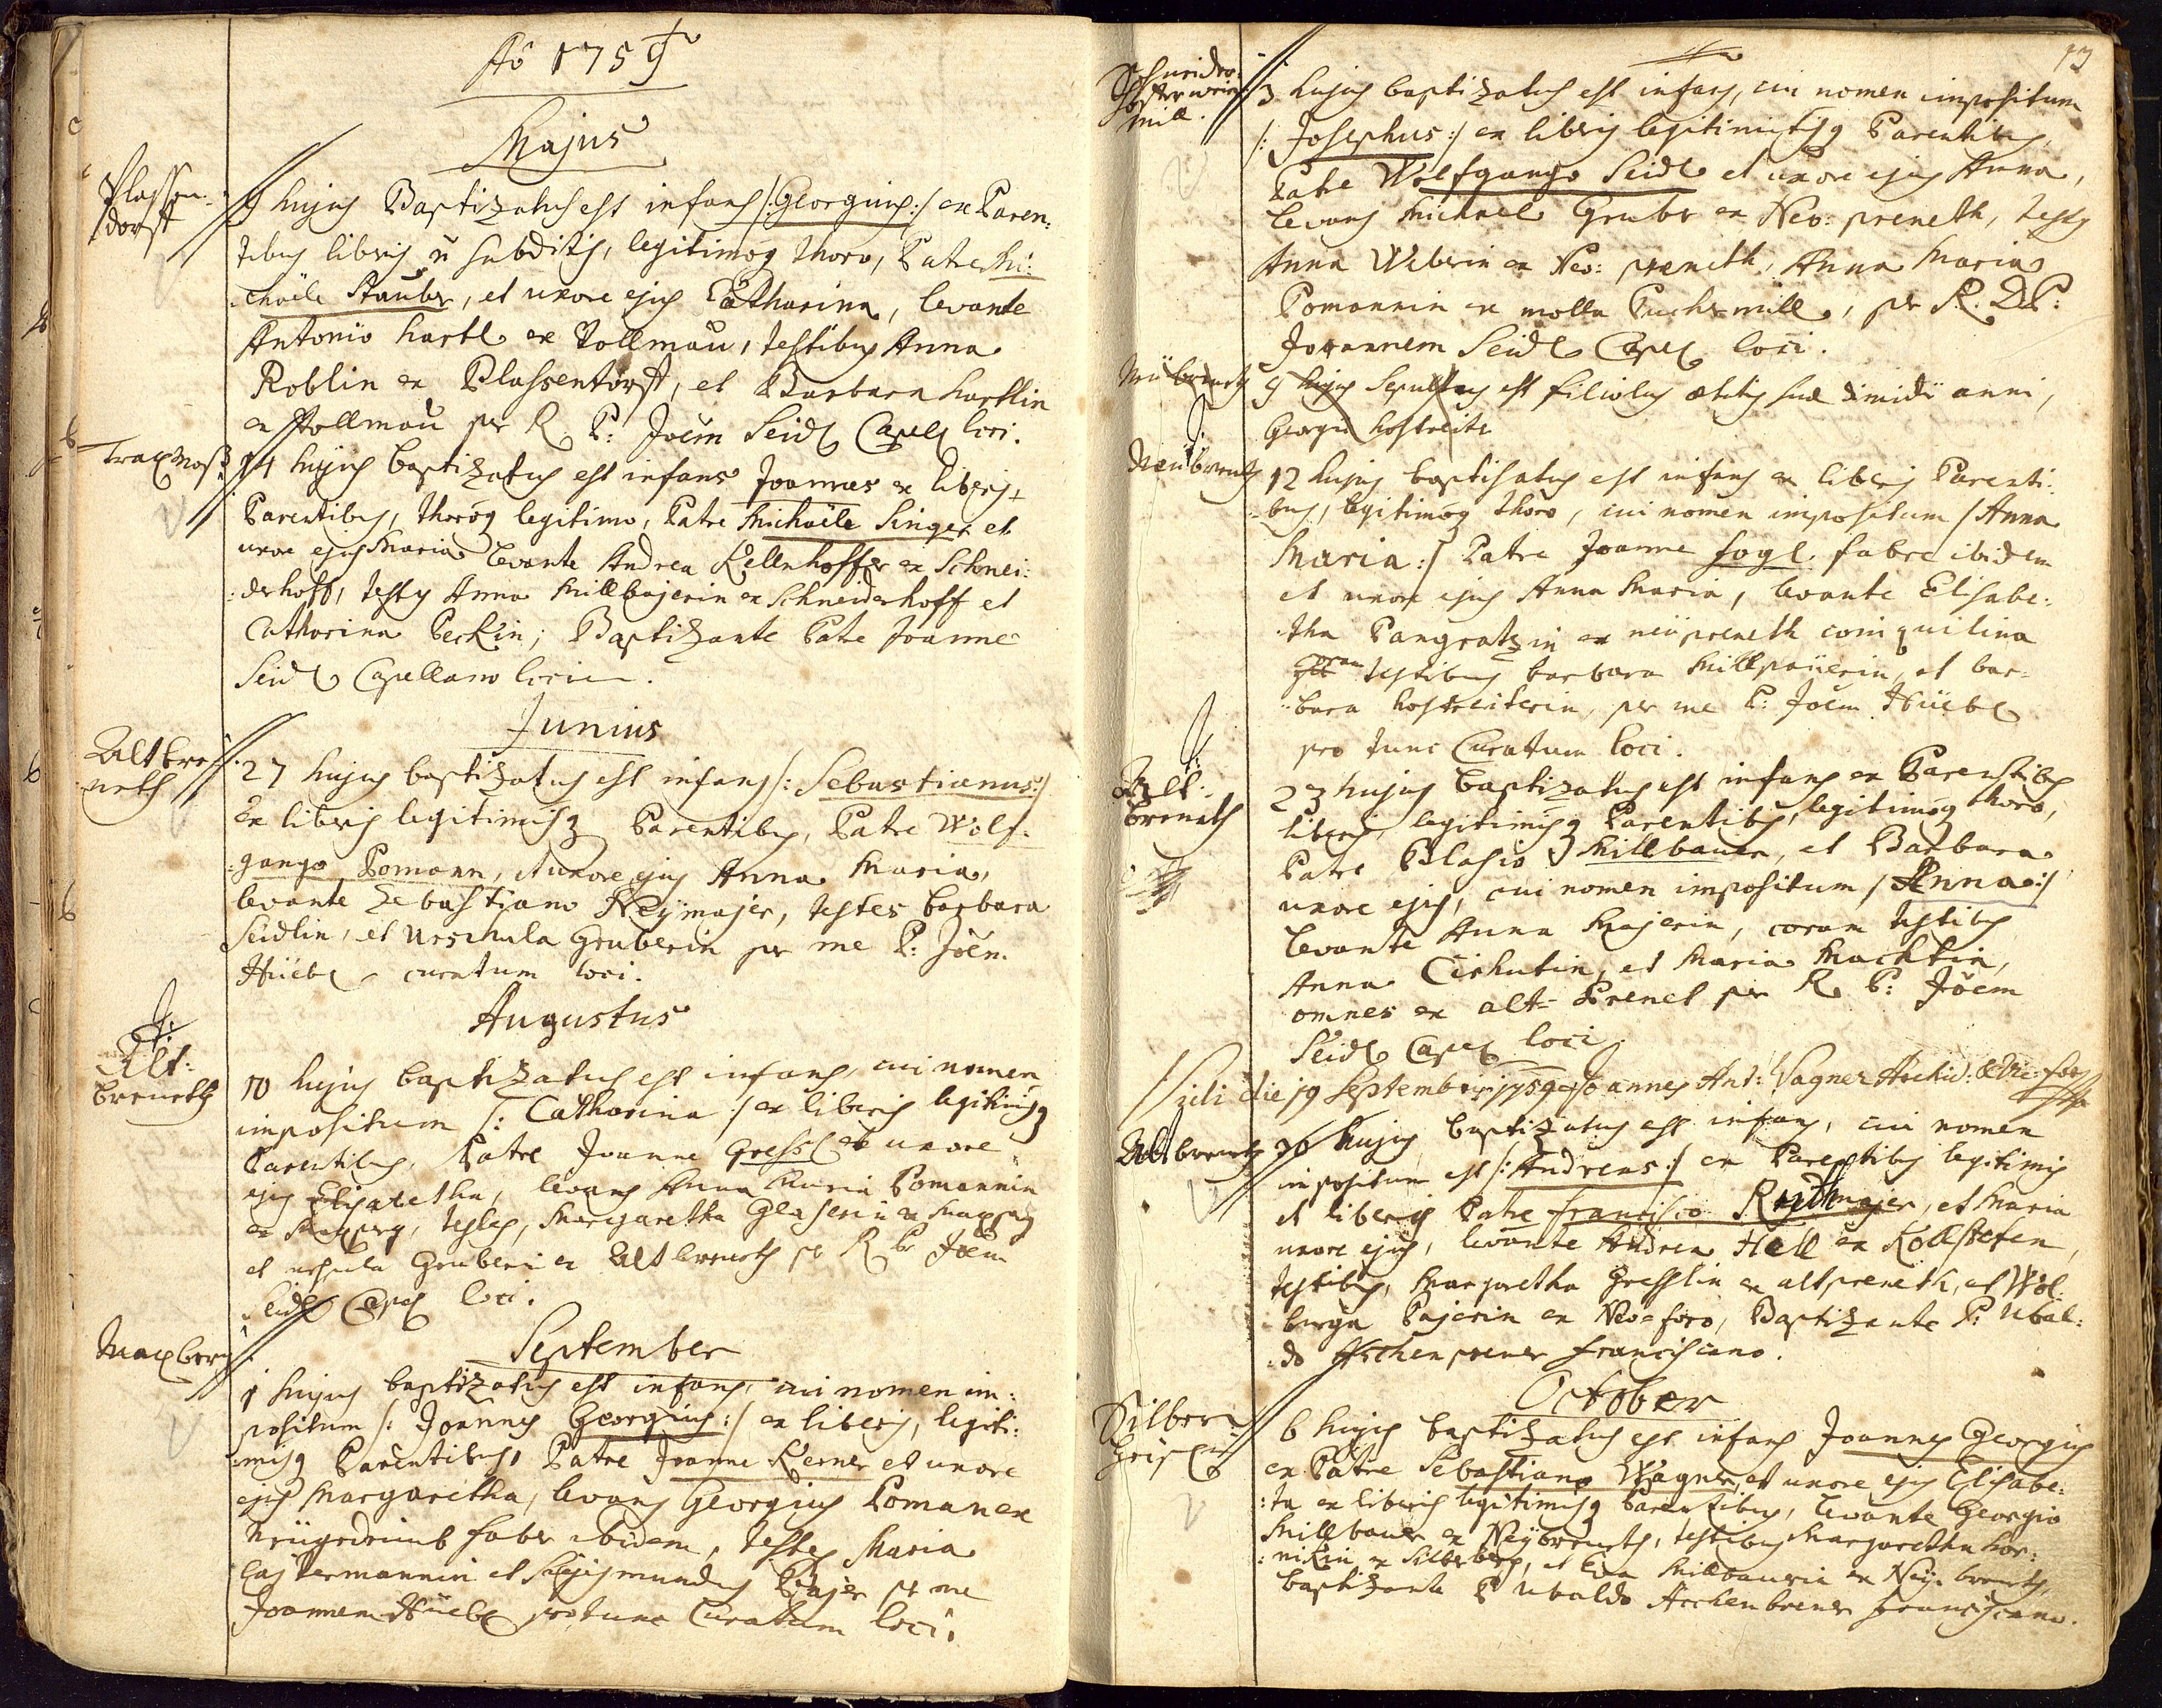 Aõ 1759
Majus
Plassen:
dorff
9 hujus Baptizatus est infans /: Georgius :/ ex Paren:
tibus liberis ñ subditis, legitimoq thoro, Patre Mi:
chaële Stauber, et uxore ejus Catharina, levante
Antonio hartl ex Vollmau, testibus Anna
Roblin ex Plassentorff, et Barbara hartlin
ex Vollmau per R. P: Joem Seidl Capell loci.
14 hujus baptizatus est infans Joannes ex liberis
Parentibus, thoroq legitimo, Patre Michaële Singer et
uxore ejus Maria levante Andrea Kellnhoffer ex Schnei:
:derhoff, testes Anna Millbajerin ex Schneiderhoff et
Catharina Peckin; Baptizante Patre Joanne
Seidl Capellano loci.
Junius
Altbre
neth
27 hujus baptizatus est infans /: Sebastianus :/
Ex liberis legitimisq Parentibus, Patre Wolf:
:gango Pomann, et uxore ejus Anna Maria,
levante Sebastiano Neÿmajer, testes barbara
Seidlin, et Urschula Gruberin per me P: Joem
Hüebl curatum loci.
Augustus
Alt:
breneth
10 hujus baptizatus est infans, cui nomen
impositum /: Catharina :/ ex liberis legitimisq
Parentibus, Patre Joanne Gressl et uxore
ejus Elisabetha, levans Anna Maria Pomannin
ex, testes, Margaretha Glaserin ex
et ursula Gruberin ex Altbreneth p R P Joem
Seidl Capel loci.
Maxberg
September
1 hujus baptizatus est infans, cui nomen im:
positum /: Joannes Georgius :/ ex liberis, legiti:
:misq Parentibus, Patre Joanne Kerner et uxore
ejus Margaretha, levans Georgius Poman ex
faber ibidem, testes Maria
et Sigismundus Pajer p me
Joannem Hüebl pro tunc Curatum loci.
13
Schneider:
mill.
3 hujus baptizatus est infans, cui nomen impositum
/: Josephus :/ ex liberis legitimisq Parentibus,
Patre Wolfgango Seidl et uxore ejus Anna,
levans Michael Gruber ex Neo: preneth, testes
Anna Weberin ex Neo: preneth, Anna Maria
Pomannin ex molla Puchermill, per R. D. P:
Joannem Seidl Capel loci.
9 hujus Sepultus est filiolus aetatis suae dimidii anni,
Georgii hostreite
Neübreneth
12 hujus baptisatus est infans ex liberis Parenti:
:bus, legitimoq thoro, cui nomen impositum /: Anna
Maria :/ Patre Joanne fogl fabre ibidem
et uxore ejus Anna Maria, levante Elisabe:
:tha Pangratzin ex neüpreneth conquilina
coram testibus barbara Millpaüerin, et bar:
:bara hostreiterin, per me P: Joem Hüebl
pro tunc Curatum loci.
Alt:
breneth
23 hujus baptizatus est infans ex Parentibus
liberis, legitimisq Parentibus, legitimoq thoro,
Patre Blasio Millbauer, et Barbara
uxore ejus, cui nomen impositum /: Anna :/
levante Anna Majerin, coram testibus
Anna Cirhutin, et Maria Machtin,
omnes ex alt= Prenet per R. P: Joem
Seidl Capel loci.
Vidi die 19 Septembris 1759 Joannes Ant: Wagner Archid: & Vic: for
Altbreneth
26 hujus baptizatus est infans, cui nomen
impositum est /: Andreas :/ ex Parentibus legitimis
et liberis Patre francisco Reythmajer, et Maria
uxore ejus, levante Andrea Hell ex Kollstefen,
testibus, Margaretha Gresslin ex altpreneth, et Wol:
:burga Pajerin ex Neo=foro, Baptizante P: Ubal:
:do Aschenprener franciscano.
October
6 hujus baptizatus est infans Joannes Georgius
ex Patre Sebastiano Wagner, et uxore ejus Elisabe:
:ta ex liberis legitimisq Parentibus, levante Georgio
Millbauer ex Neÿbreneth, testibus Margaretha hor:
:nikin ex Silberberg, et Eva Millbaurin ex Neÿ: breneth,
baptizante P Ubaldo Aschenbrener franciscano.